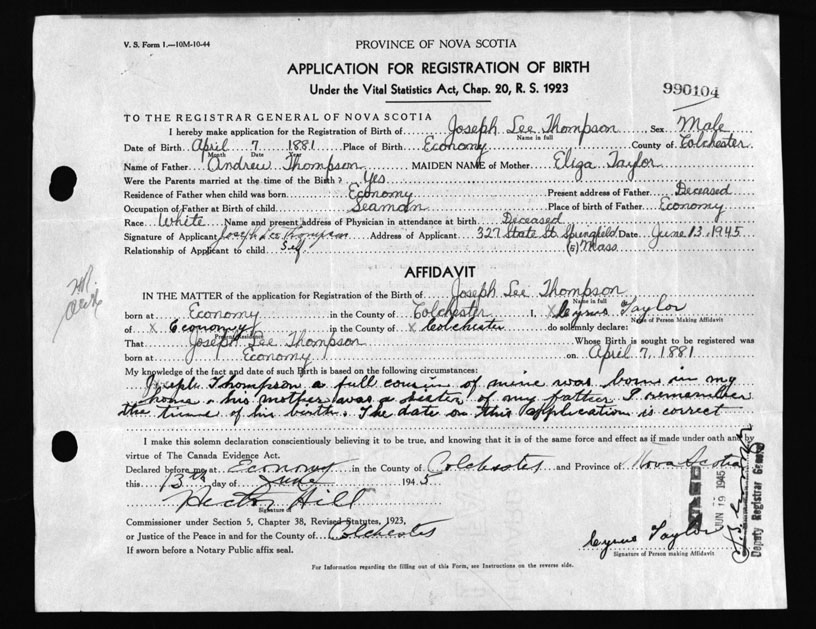 V. S. Form 1.—10M-10-44
PROVINCE OF NOVA SCOTIA
APPLICATION FOR REGISTRATION OF BIRTH
Under the Vital Statistics Act, Chap. 20, R. S. 1923
990104
TO THE REGISTRAR GENERAL OF NOVA SCOTIA
I hereby make application for the Registration of Birth of Joseph Lee Thompson Sex Male
Name in full
Date of Birth April 7 1881 Place of Birth Economy County of Colchester
Month Date Year
Name of Father Andrew Thompson MAIDEN NAME of Mother Eliza Taylor
Were the Parents married at the time of the Birth? Yes
Residence of Father when child was born Economy Present address of Father Deceased
Occupation of Father at Birth of child Seaman Place of birth of Father Economy
Race White Name and present address of Physician in attendance at birth Deceased
Signature of Applicant Joseph Lee Thompson Address of Applicant 327 State St. Springfield Date June 13, 1945
Relationship of Applicant to child Self Mass
AFFIDAVIT
IN THE MATTER of the application for Registration of the Birth of Joseph Lee Thompson
Name in full
born at Economy in the County of Colchester I, X Cyrus Taylor
Name of Person Making Affidavit
of X Economy in the County of X Colchester do solemnly declare:
That Joseph Lee Thompson Whose Birth is sought to be registered was
born at Economy on April 7, 1881
My knowledge of the fact and date of such Birth is based on the following circumstances:
Joseph Thompson a full cousin of mine was born in my
home & his mother was a sister of my father I remember
the time of his birth. The date on this application is correct
I make this solemn declaration conscientiously believing it to be true, and knowing that it is of the same force and effect as if made under oath and by
virtue of The Canada Evidence Act.
Declared before me at Economy in the County of Colchester and Province of Nova Scotia
this 13th day of June 1945
Hector Hill
Signature of
Commissioner under Section 5, Chapter 38, Revised Statutes, 1923,
or Justice of the Peace in and for the County of Colchester
If sworn before a Notary Public affix seal.
Cyrus Taylor
Signature of Person making Affidavit
JUN 19 1945
Deputy Registrar General
For Information regarding the filling out of this Form, see Instructions on the reverse side.